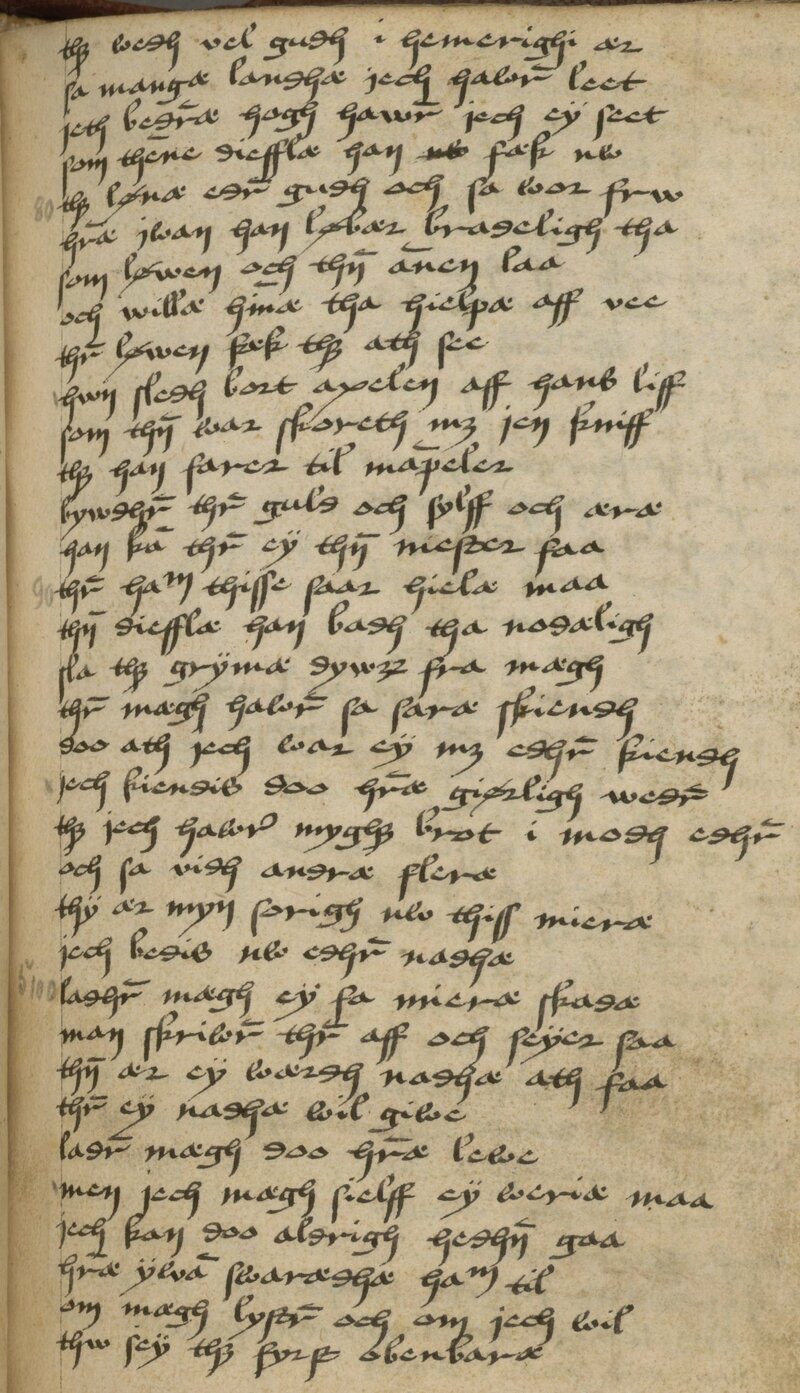 thz wedh vel gudh i hemerighi ær
sa mangæ landhæ jech hawr̄ leet
jeth bedr̄æ hogh hawr̄ jech ey seet
som thēne diefflæ han fæk nw
80 thz lønæ edr̄ gudh och sa wor frw
hr̄æ jwan han løbær bradeligh tha
som løwen och thn̄ ānen laa
och willæ hīnæ tha hielpæ aff vee
thr̄ løwen fæk thz ath see
hwn sledh bort axelen aff hans liff
som thn̄ war skoreth mz jen kniff
thz han farer til māpeler
bywdhr̄ thr̄ guld och sylff och æræ
han kā thr̄ ey thn̄ mester faa
90 thr̄ haᵐ thisse saar hielæ maa
thn̄ diefflæ han badh tha nodæligh
sla thz grymæ dywrz fra mægh
thr̄ mægh hawr̄ sa saræ skiendh
doo ath jech war ey mz edhr̄ kiendh
jech kiendis doo hr̄æ giørligh wedr̄
thz jech hawr̄ myghz brot i modh edhr̄
och sa vidh andræ fleræ
thy ær myn sorigh nw thiss mieræ
jech bedis nw edhr̄ nadhæ
100 ladhr̄ mægh ey fa mieræ skadæ
man skriwr̄ thr̄ aff och seyer saa
thn̄ ær ey wærdh nadhæ ath faa
thr̄ ey nadhæ wil giwe
ladr̄ mægh doo hr̄æ lewe
men jech mægh sielff ey weriæ maa
jech kan doo aldrigh hedhn̄ gaa
hr̄æ ywā swarædhæ haᵐ til
om mægh lystr̄ och om jech wil
thw sey thz fyrst obenbaræ